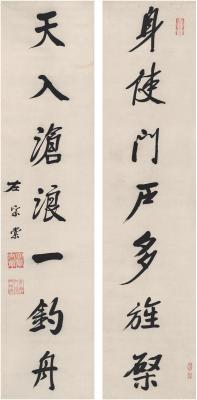 身使門戶多旌棨
天入滄浪一釣舟
左宗棠